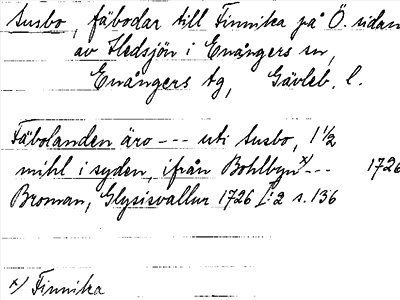 Susbo, fäbodar till Finnika på Ö. sidan
av Hedsjön i Enångers sn,
Enångers tg, Gävleb. l.
Fäbolanden äro --- uti Susbo, 1 1/2
mihl i syden, ifrån Bohlbyn x) --- 1726
Broman, Glysisvallur 1726 I:2 s. 136
x) Finnika